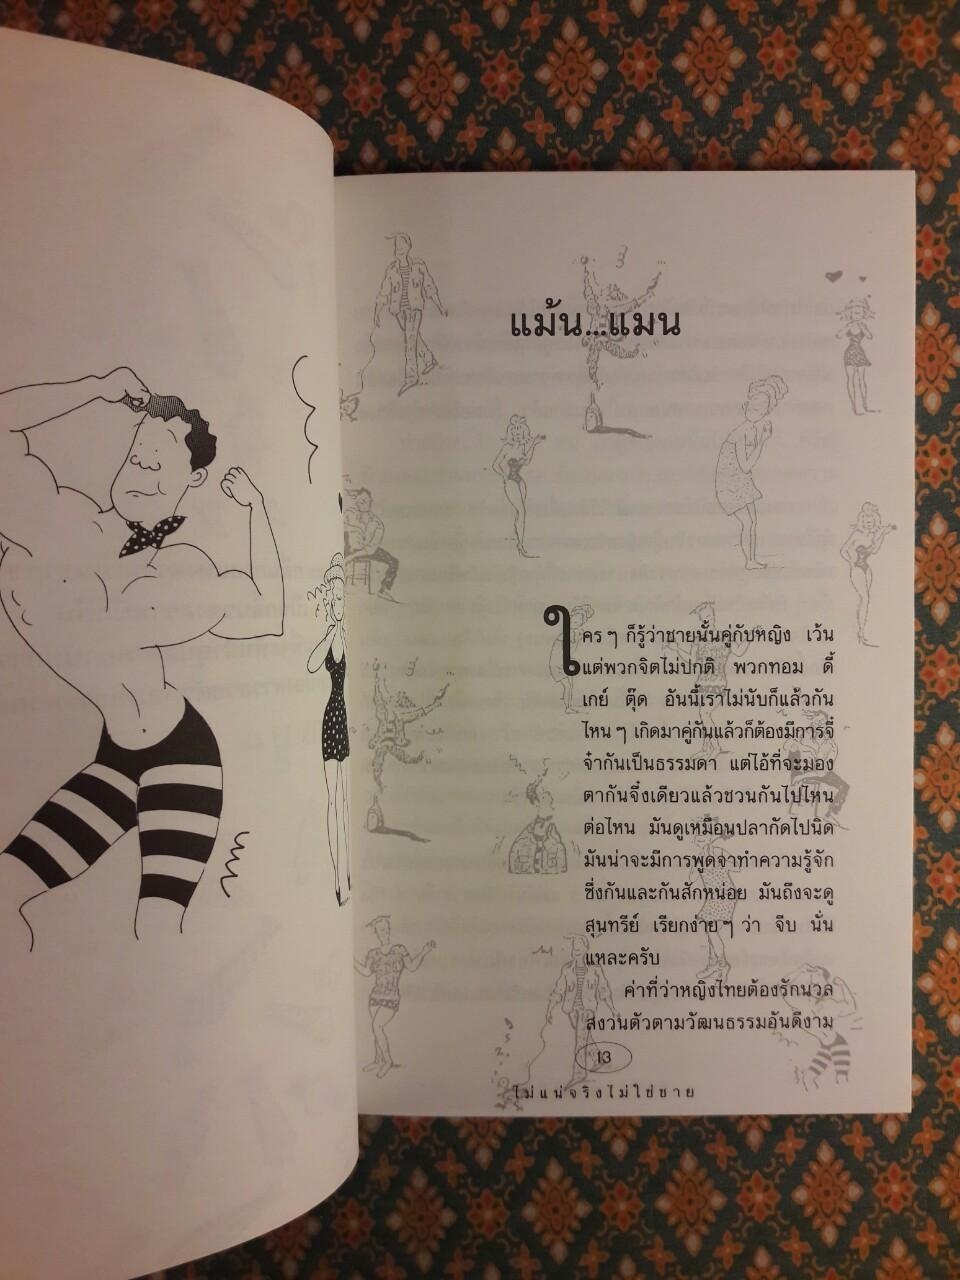 แม้น...แมน
ใคร ๆ ก็รู้ว่าชายนั้นคู่กับหญิง เว้น
แต่พวกจิตไม่ปกติ พวกทอม ดี้
เกย์ ตุ๊ด อันนี้เราไม่นับก็แล้วกัน
ไหน ๆ เกิดมาคู่กันแล้วก็ต้องมีการจี๋
จ๋ากันเป็นธรรมดา แต่ไอ้ที่จะมอง
ตากันจึ๋งเดียวแล้วชวนกันไปไหน
ต่อไหน มันดูเหมือนปลากัดไปนิด
มันน่าจะมีการพูดจาทำความรู้จัก
ซึ่งกันและกันสักหน่อย มันถึงจะดู
สุนทรีย์ เรียกง่าย ๆ ว่า จีบ นั่น
แหละครับ
ค่าที่ว่าหญิงไทยต้องรักนวล
สงวนตัวตามวัฒนธรรมอันดีงาม
13
ไม่แน่จริงไม่ใช่ชาย